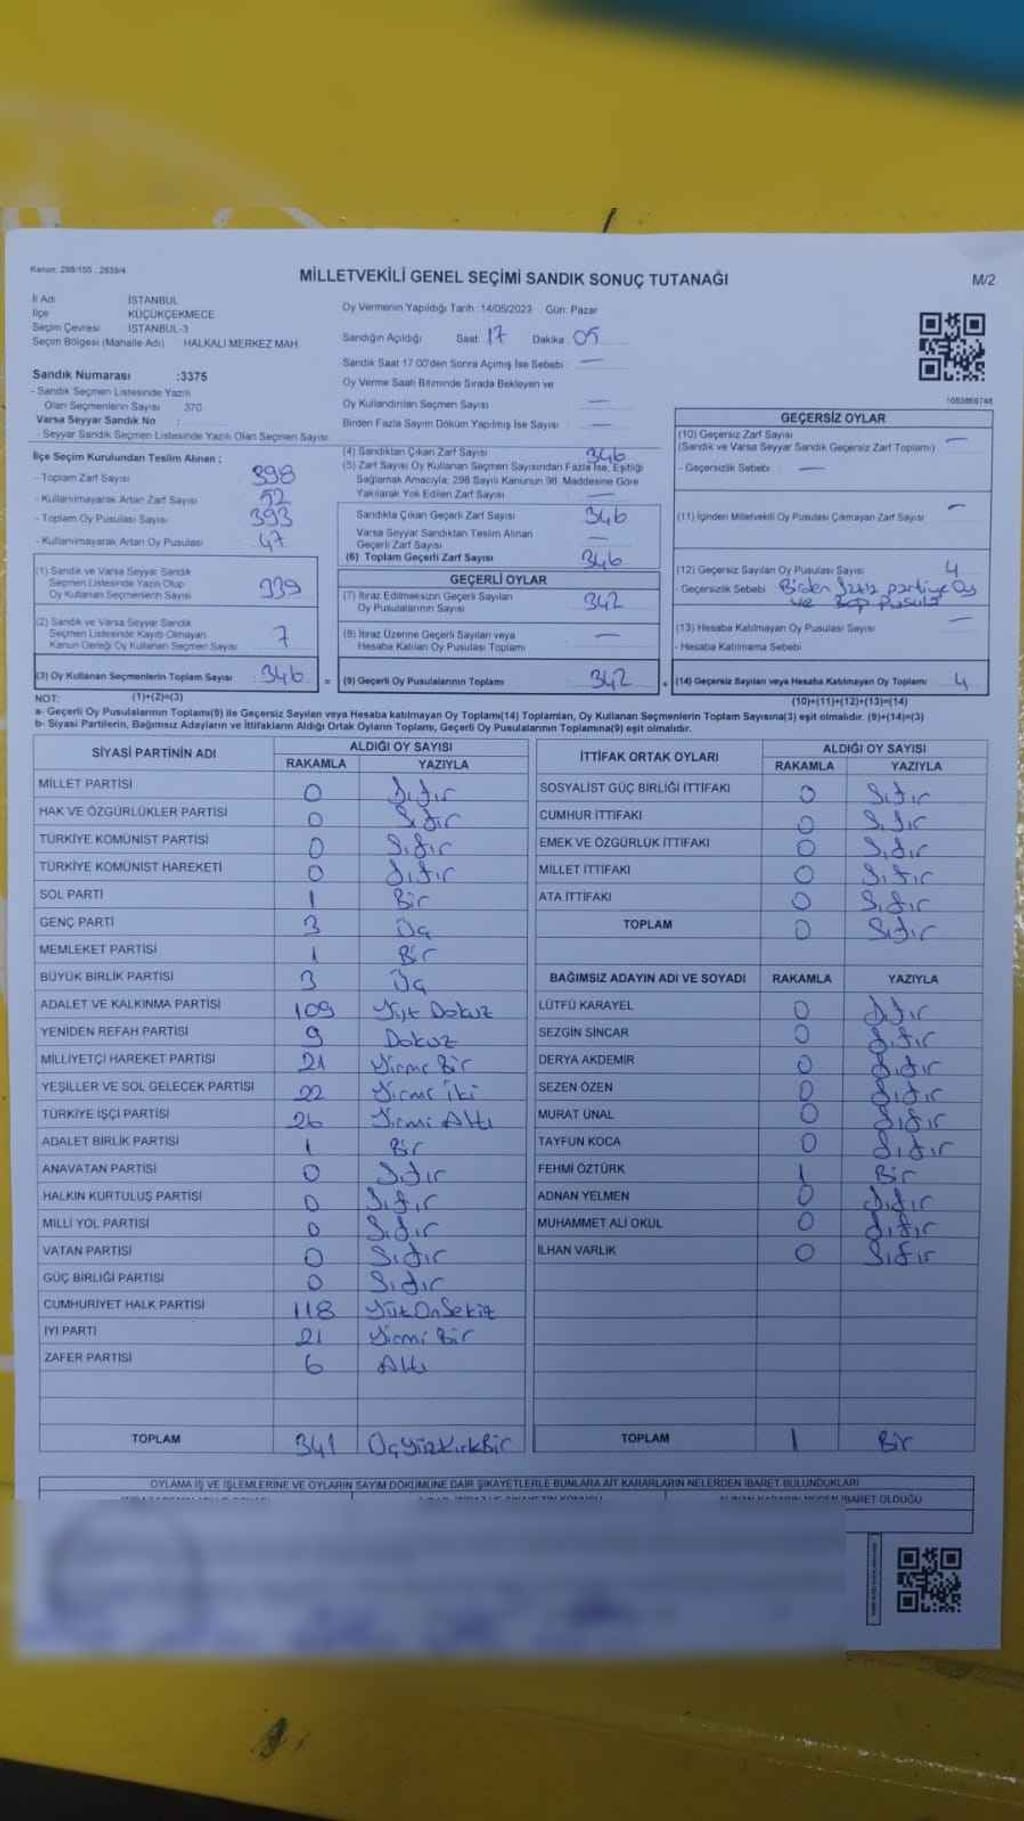 Kanun: 298/155 , 2839/4
MİLLETVEKİLİ GENEL SEÇİMİ SANDIK SONUÇ TUTANAĞI
M/2
İl Adı İSTANBUL
İlçe KÜÇÜKÇEKMECE
Seçim Çevresi İSTANBUL-3
Seçim Bölgesi (Mahalle Adı) HALKALI MERKEZ MAH.
Sandık Numarası :3375
- Sandık Seçmen Listesinde Yazılı
Olan Seçmenlerin Sayısı 370
Varsa Seyyar Sandık No :
- Seyyar Sandık Seçmen Listesinde Yazılı Olan Seçmen Sayısı
İlçe Seçim Kurulundan Teslim Alınan :
- Toplam Zarf Sayısı 398
- Kullanılmayarak Artan Zarf Sayısı 52
- Toplam Oy Pusulası Sayısı 393
- Kullanılmayarak Artan Oy Pusulası 47
(1) Sandık ve Varsa Seyyar Sandık
Seçmen Listesinde Yazılı Olup
Oy Kullanan Seçmenlerin Sayısı 339
(2) Sandık ve Varsa Seyyar Sandık
Seçmen Listesinde Kayıtlı Olmayan
Kanun Gereği Oy Kullanan Seçmen Sayısı 7
(3) Oy Kullanan Seçmenlerin Toplam Sayısı 346 =
Oy Vermenin Yapıldığı Tarih: 14/05/2023 Gün: Pazar
Sandığın Açıldığı Saat: 17 Dakika: 05
Sandık Saat 17.00'den Sonra Açılmış İse Sebebi —
Oy Verme Saati Bitiminde Sırada Bekleyen ve
Oy Kullandırılan Seçmen Sayısı —
Birden Fazla Sayım Döküm Yapılmış İse Sayısı —
(4) Sandıktan Çıkan Zarf Sayısı 346
(5) Zarf Sayısı Oy Kullanan Seçmen Sayısından Fazla İse, Eşitliği
Sağlamak Amacıyla; 298 Sayılı Kanunun 98. Maddesine Göre
Yakılarak Yok Edilen Zarf Sayısı —
Sandıkta Çıkan Geçerli Zarf Sayısı 346
Varsa Seyyar Sandıktan Teslim Alınan
Geçerli Zarf Sayısı —
(6) Toplam Geçerli Zarf Sayısı 346
GEÇERLİ OYLAR
(7) İtiraz Edilmeksizin Geçerli Sayılan
Oy Pusulalarının Sayısı 342
(8) İtiraz Üzerine Geçerli Sayılan veya
Hesaba Katılan Oy Pusulası Toplamı —
(9) Geçerli Oy Pusulalarının Toplamı 342 +
1083869748
GEÇERSİZ OYLAR
(10) Geçersiz Zarf Sayısı —
(Sandık ve Varsa Seyyar Sandık Geçersiz Zarf Toplamı)
- Geçersizlik Sebebi —
(11) İçinden Milletvekili Oy Pusulası Çıkmayan Zarf Sayısı —
(12) Geçersiz Sayılan Oy Pusulası Sayısı 4
- Geçersizlik Sebebi Birden fazla partiye Oy
ve Boş Pusula
(13) Hesaba Katılmayan Oy Pusulası Sayısı —
- Hesaba Katılmama Sebebi
(14) Geçersiz Sayılan veya Hesaba Katılmayan Oy Toplamı 4
NOT: (1)+(2)=(3) (10)+(11)+(12)+(13)=(14)
a- Geçerli Oy Pusulalarının Toplamı(9) ile Geçersiz Sayılan veya Hesaba katılmayan Oy Toplamı(14) Toplamları, Oy Kullanan Seçmenlerin Toplam Sayısına(3) eşit olmalıdır. (9)+(14)=(3)
b- Siyasi Partilerin, Bağımsız Adayların ve İttifakların Aldığı Ortak Oyların Toplamı, Geçerli Oy Pusulalarının Toplamına(9) eşit olmalıdır.
SİYASİ PARTİNİN ADI ALDIĞI OY SAYISI
RAKAMLA YAZIYLA
MİLLET PARTİSİ 0 Sıfır
HAK VE ÖZGÜRLÜKLER PARTİSİ 0 Sıfır
TÜRKİYE KOMÜNİST PARTİSİ 0 Sıfır
TÜRKİYE KOMÜNİST HAREKETİ 0 Sıfır
SOL PARTİ 1 Bir
GENÇ PARTİ 3 Üç
MEMLEKET PARTİSİ 1 Bir
BÜYÜK BİRLİK PARTİSİ 3 Üç
ADALET VE KALKINMA PARTİSİ 109 Yüz Dokuz
YENİDEN REFAH PARTİSİ 9 Dokuz
MİLLİYETÇİ HAREKET PARTİSİ 21 Yirmi Bir
YEŞİLLER VE SOL GELECEK PARTİSİ 22 Yirmi İki
TÜRKİYE İŞÇİ PARTİSİ 26 Yirmi Altı
ADALET BİRLİK PARTİSİ 1 Bir
ANAVATAN PARTİSİ 0 Sıfır
HALKIN KURTULUŞ PARTİSİ 0 Sıfır
MİLLİ YOL PARTİSİ 0 Sıfır
VATAN PARTİSİ 0 Sıfır
GÜÇ BİRLİĞİ PARTİSİ 0 Sıfır
CUMHURİYET HALK PARTİSİ 118 Yüz On Sekiz
İYİ PARTİ 21 Yirmi Bir
ZAFER PARTİSİ 6 Altı
TOPLAM 341 Üç Yüz Kırk Bir
İTTİFAK ORTAK OYLARI ALDIĞI OY SAYISI
RAKAMLA YAZIYLA
SOSYALİST GÜÇ BİRLİĞİ İTTİFAKI 0 Sıfır
CUMHUR İTTİFAKI 0 Sıfır
EMEK VE ÖZGÜRLÜK İTTİFAKI 0 Sıfır
MİLLET İTTİFAKI 0 Sıfır
ATA İTTİFAKI 0 Sıfır
TOPLAM 0 Sıfır
BAĞIMSIZ ADAYIN ADI VE SOYADI RAKAMLA YAZIYLA
LÜTFÜ KARAYEL 0 Sıfır
SEZGİN SİNCAR 0 Sıfır
DERYA AKDEMİR 0 Sıfır
SEZEN ÖZEN 0 Sıfır
MURAT ÜNAL 0 Sıfır
TAYFUN KOCA 0 Sıfır
FEHMİ ÖZTÜRK 1 Bir
ADNAN YELMEN 0 Sıfır
MUHAMMET ALİ OKUL 0 Sıfır
İLHAN VARLIK 0 Sıfır
TOPLAM 1 Bir
OYLAMA İŞ VE İŞLEMLERİNE VE OYLARIN SAYIM DÖKÜMÜNE DAİR ŞİKAYETLERLE BUNLARA AİT KARARLARIN NELERDEN İBARET BULUNDUKLARI
İBARET OLDUĞU